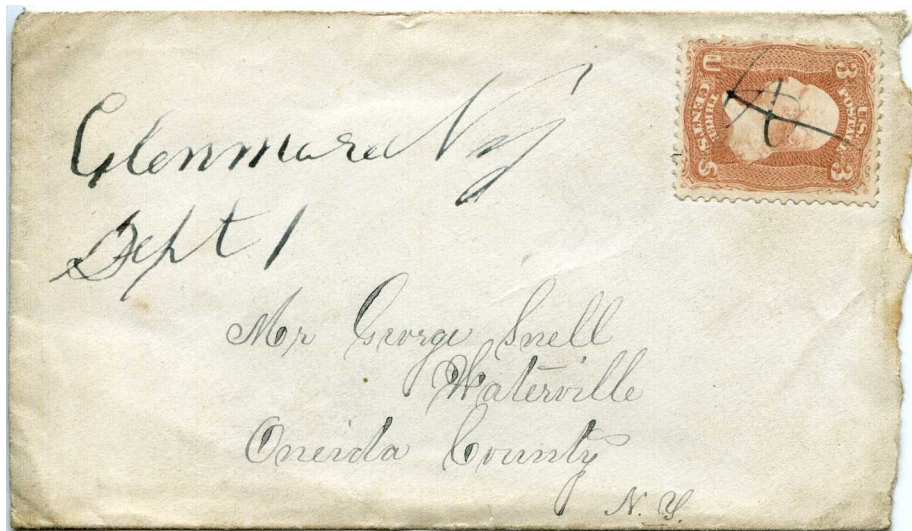 Glenmore N y
Sept 1
U 3
U.S. POSTAGE
THREE CENTS
S 3
Mr George Snell
Waterville
Oneida County
N. Y.